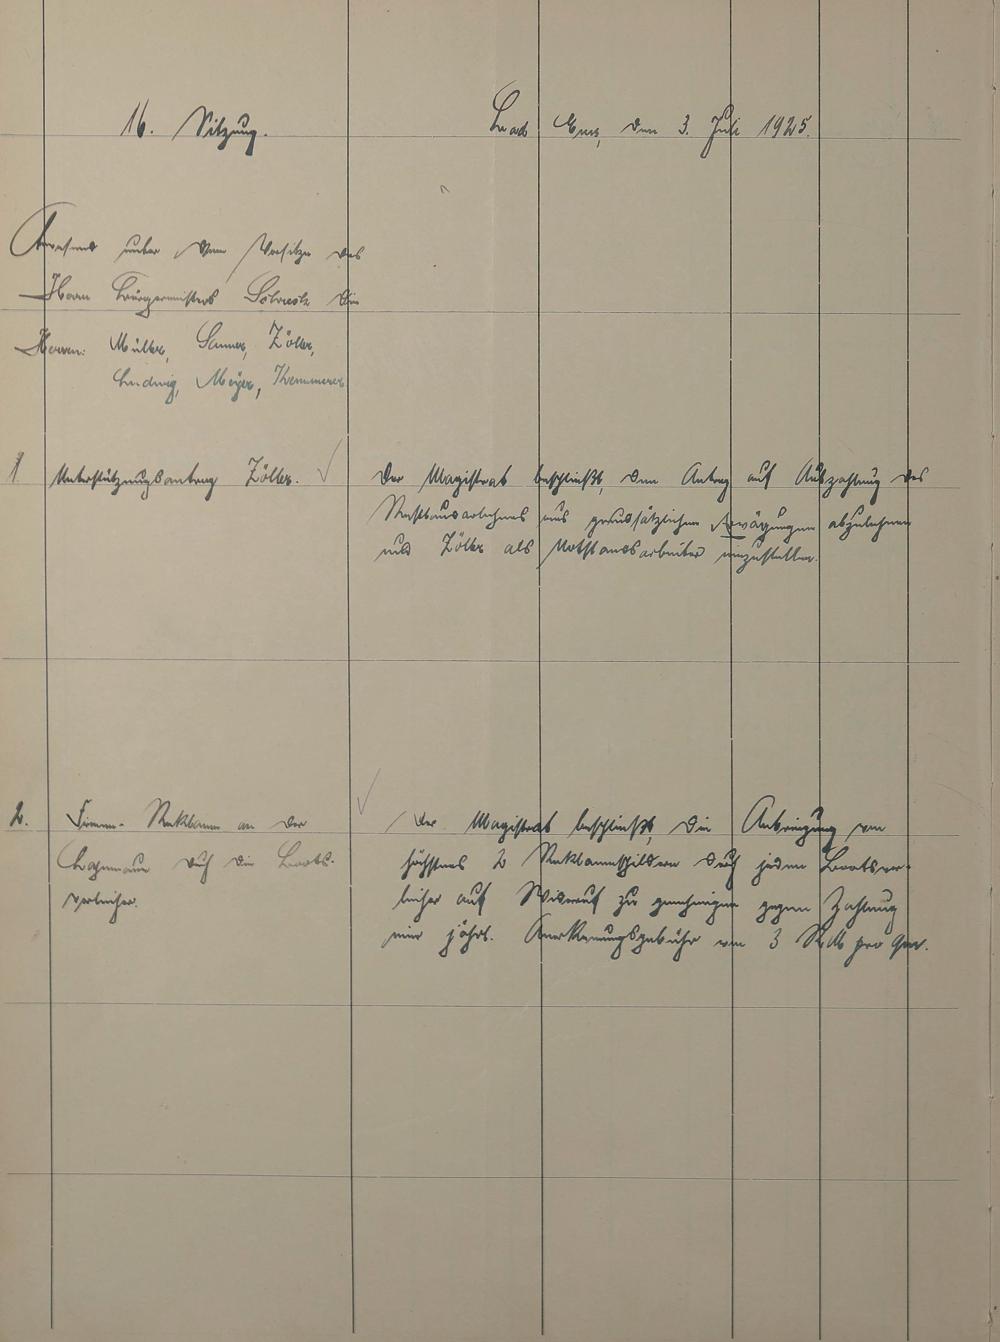 16. Sitzung.
Bad Ems, den 3. Juli 1925.
Anwesend unter dem Vorsitze des
Herrn Bürgermeisters die
Herren: Müller, Sanner, Zöller,
Ludwig, Meyer, Kemmerer
1 Unterstützungsantrag Zöller.
Der Magistrat beschließt, den Antrag auf Auszahlung des
aus grundsätzlichen Erwägungen abzulehnen
und Zöller als Notstandsarbeiter einzustellen.
2. Firmen-Reklame an der
Lahnmauer durch die Boots-
verleiher.
Der Magistrat beschließt, die Anbringung von
höchstens 2 Reklameschildern durch jeden Bootsver-
leiher auf Widerruf zu genehmigen gegen Zahlung
einer jährl. Anerkennungsgebühr von 3 RM pro qm.